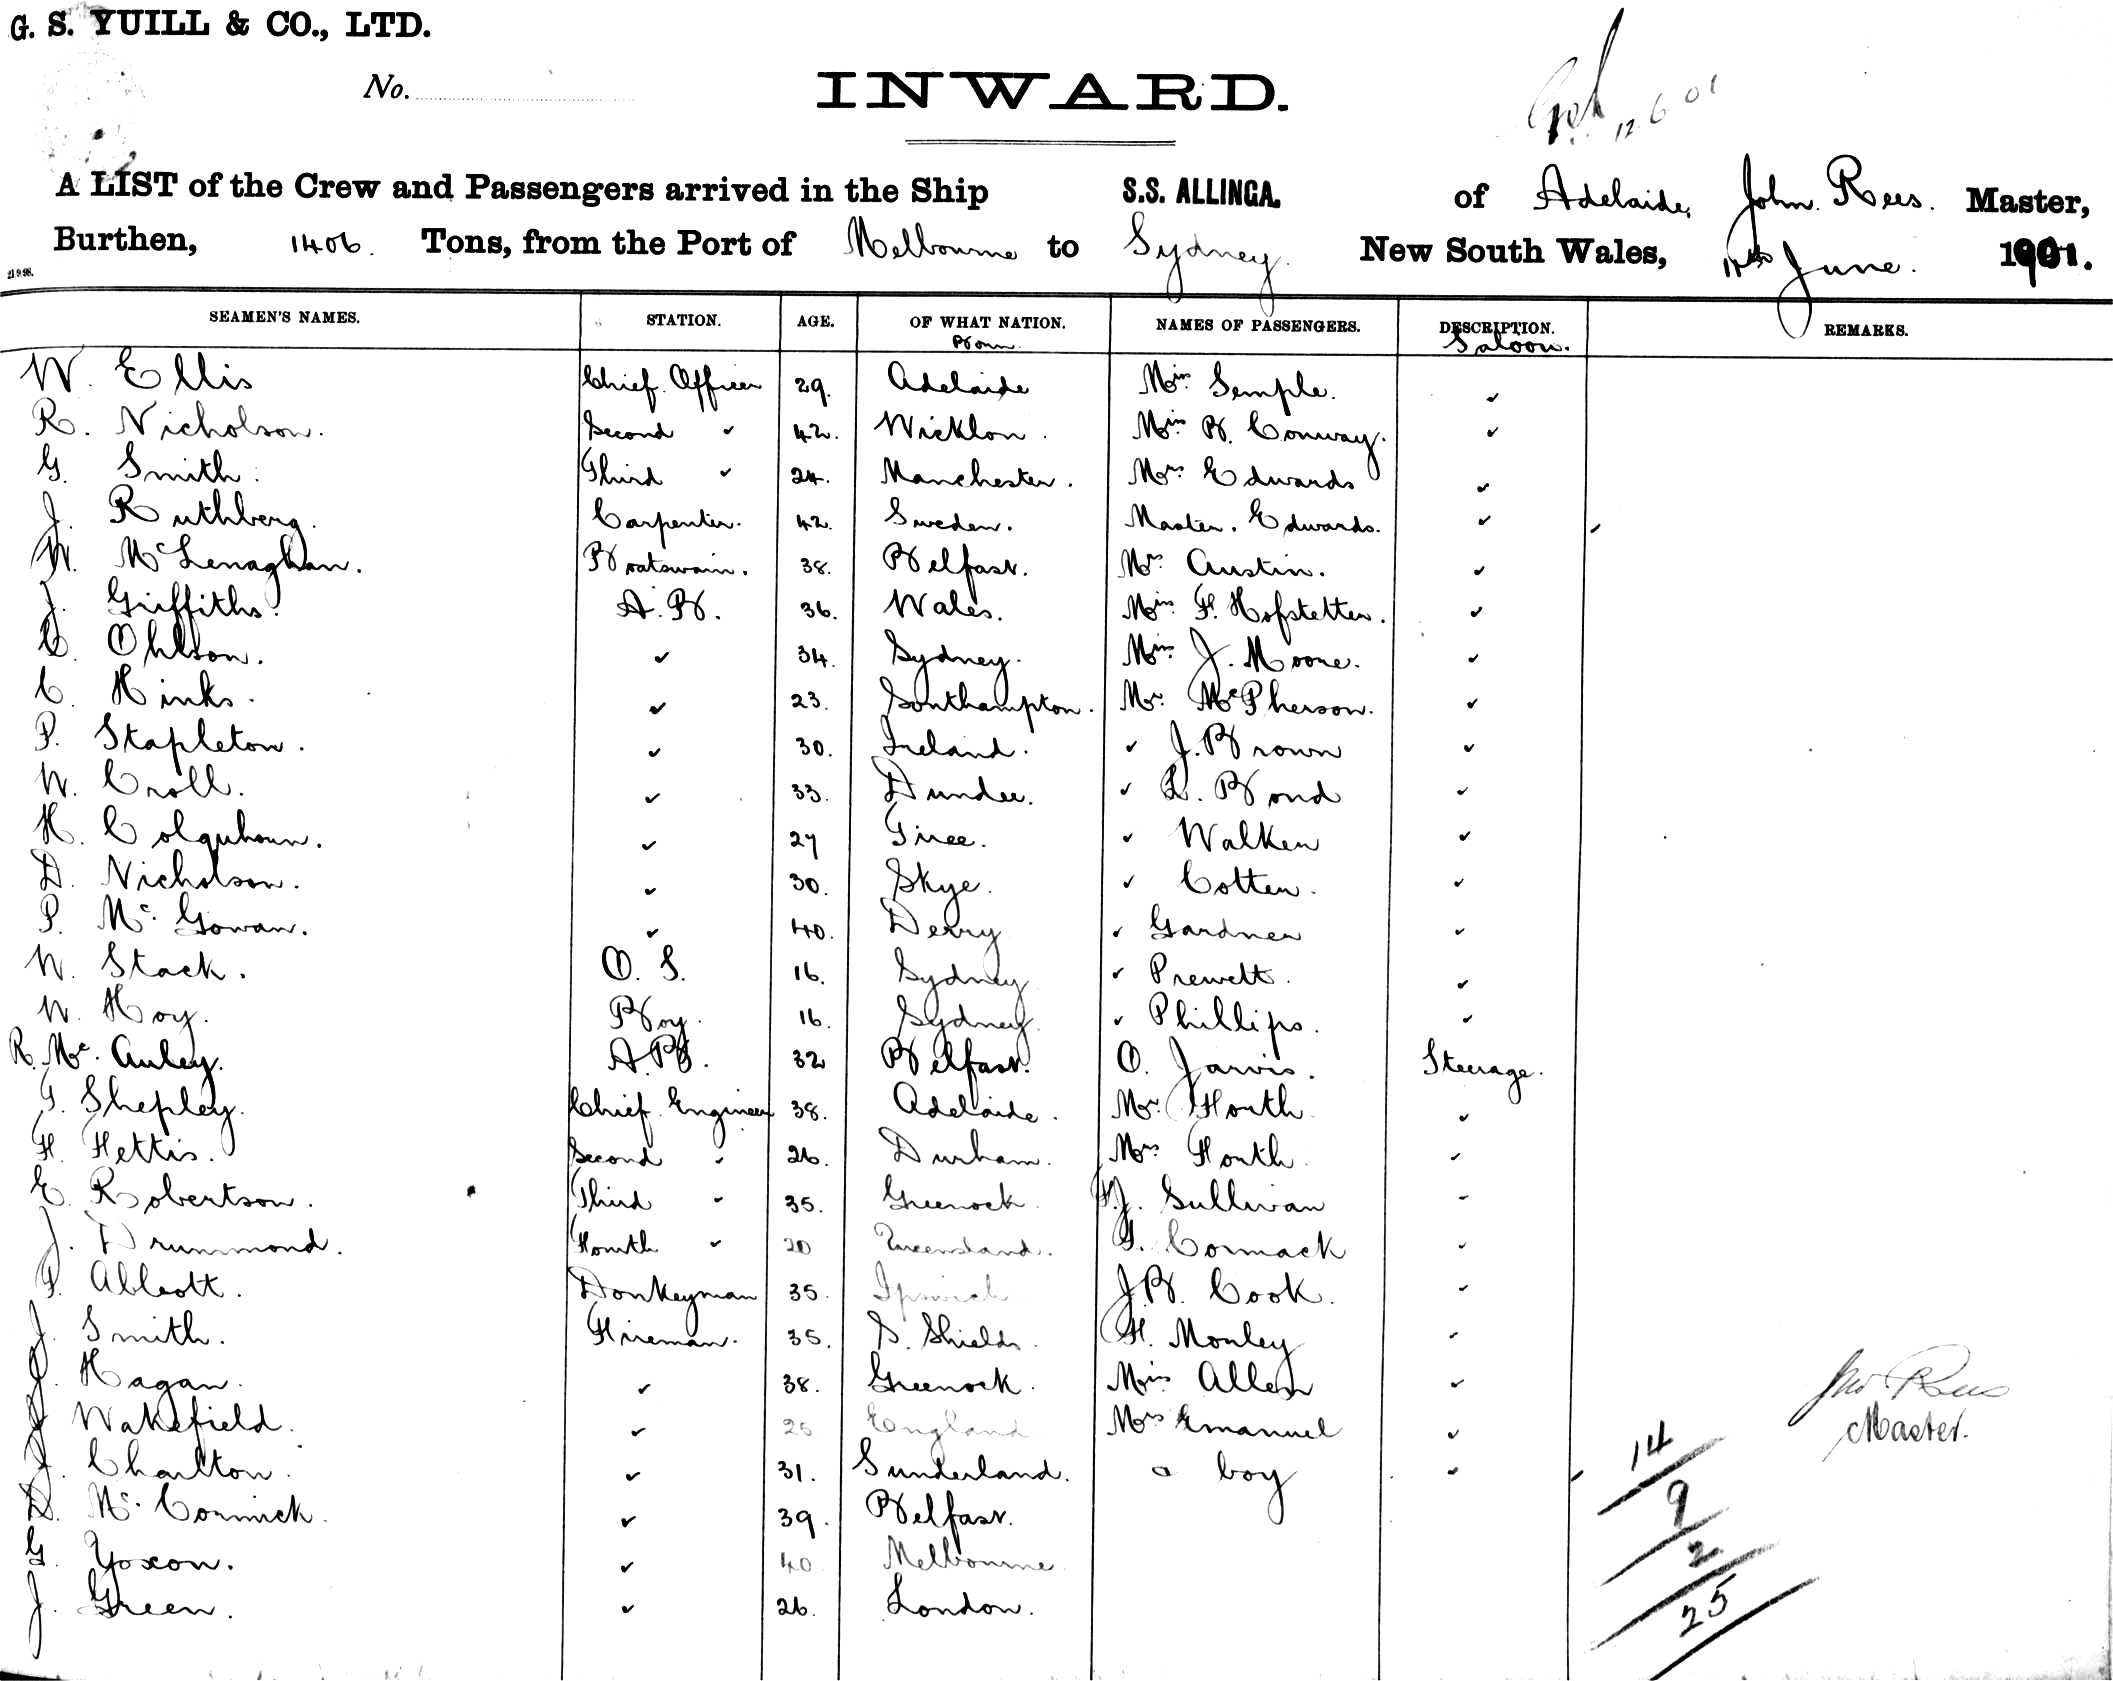 G. S. YUILL & CO., LTD.
No.
INWARD.
12 6 01
A LIST of the Crew and Passengers arrived in the Ship S.S. ALLINGA. of Adelaide, John. Rees. Master,
Burthen, 1406. Tons, from the Port of Melbourne to Sydney. New South Wales, 11th June. 1901.
21 9 98.
SEAMEN'S NAMES. STATION. AGE. OF WHAT NATION. NAMES OF PASSENGERS. DESCRIPTION. REMARKS.
Born. Saloon.
W. Ellis Chief Officer 29. Adelaide Miss Semple. ✓
R. Nicholson. Second ✓ 42. Wicklow. Miss B. Conway. ✓
G. Smith. Third ✓ 24. Manchester. Mrs Edwards ✓
J. Ruthberg. Carpenter. 42. Sweden. Master. Edwards. ✓
W. McLenaghan. Boatswain. 38. Belfast. Mrs Austin. ✓
J. Griffiths. A. B. 36. Wales. Miss F. Hofstetter. ✓
C. Ohlson. ✓ 34. Sydney. Miss J. Moore. ✓
C. Hinks. ✓ 23. Southampton. Mr. McPherson. ✓
P. Stapleton. ✓ 30. Ireland. ✓ J. Brown ✓
W. Croll. ✓ 33. Dundee. ✓ L. Bond ✓
H. Colquhoun. ✓ 27 Tiree. ✓ Walker ✓
D. Nicholson. ✓ 30. Skye. ✓ Cotter. ✓
P. Mc. Gowan. ✓ 40. Derry ✓ Gardner ✓
W. Stack. O. S. 16. Sydney ✓ Prewett. ✓
W. Hoy. Boy. 16. Sydney. ✓ Phillips. ✓
R. Mc. Auley. A.B. 32 Belfast. O. Jarvis. Steerage.
T. Shepley. Chief Engineer 38. Adelaide. Mr. Forth ✓
F. Fettis. Second ✓ 26. Durham. Mrs Forth ✓
E. Robertson. Third ✓ 35. Greenock. F.J. Sullivan ✓
J. Drummond. Fourth ✓ 20 Queensland. T. Cormack ✓
T. Abbott. Donkeyman 35. Ipswich J.B. Cook. ✓
J. Smith. Fireman. 35. S. Shields. F. Morley ✓
J. Hagan. ✓ 38. Greenock. Miss Allen ✓
J. Wakefield. ✓ 25 England Mrs Emanuel ✓
J. Charlton. ✓ 31. Sunderland. a boy ✓
D. Mc. Cormick. ✓ 39. Belfast.
G. Yoxon. ✓ 40 Melbourne
J. Green. ✓ 26. London.
Jno. Rees
Master.
14
9
2
25